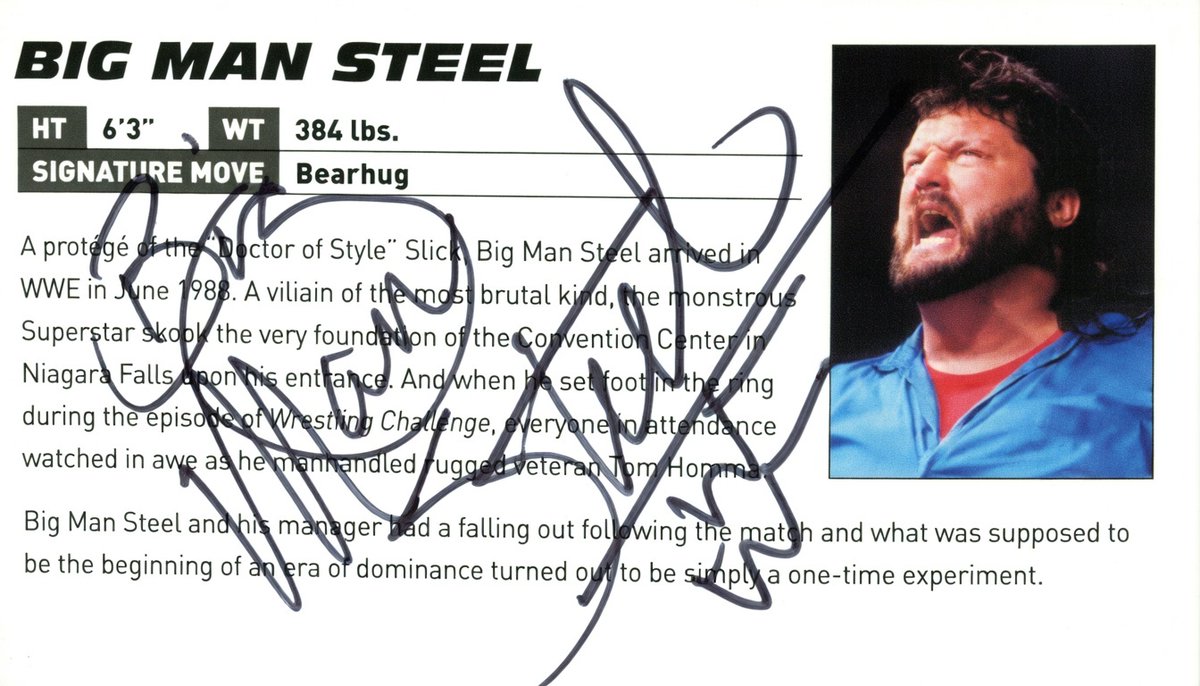 BIG MAN STEEL
HT 6'3" WT 384 lbs.
SIGNATURE MOVE Bearhug
A protégé of the "Doctor of Style" Slick, Big Man Steel arrived in
WWE in June 1988. A viliain of the most brutal kind, the monstrous
Superstar skook the very foundation of the Convention Center in
Niagara Falls upon his entrance. And when he set foot in the ring
during the episode of Wrestling Challenge, everyone in attendance
watched in awe as he manhandled rugged veteran Tom Homma.
Big Man Steel and his manager had a falling out following the match and what was supposed to
be the beginning of an era of dominance turned out to be simply a one-time experiment.
Big
Man
Steel